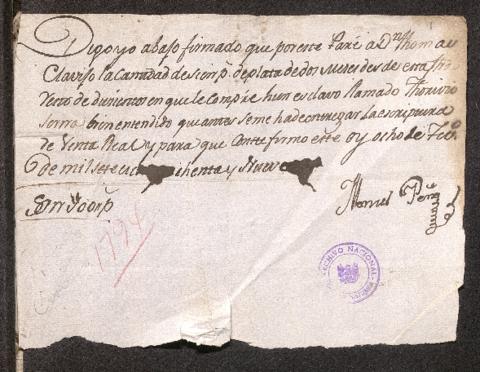 Digo yo abajo firmado que por este Pare a Dn Thomas
Clavijo la Cantidad de sien ps de plata dedos Meses desde esta fha
Resto de dusientos en que le Compre hun esclavo llamado
bien entendido que antes seme hade entregar la escriptura
de Venta Real y para que Conste firmo este oy ocho de Febo
De mil sete y Nueve
Son 100 ps
Manuel
1794
ARCHIVO NACIONAL
HISTORICA